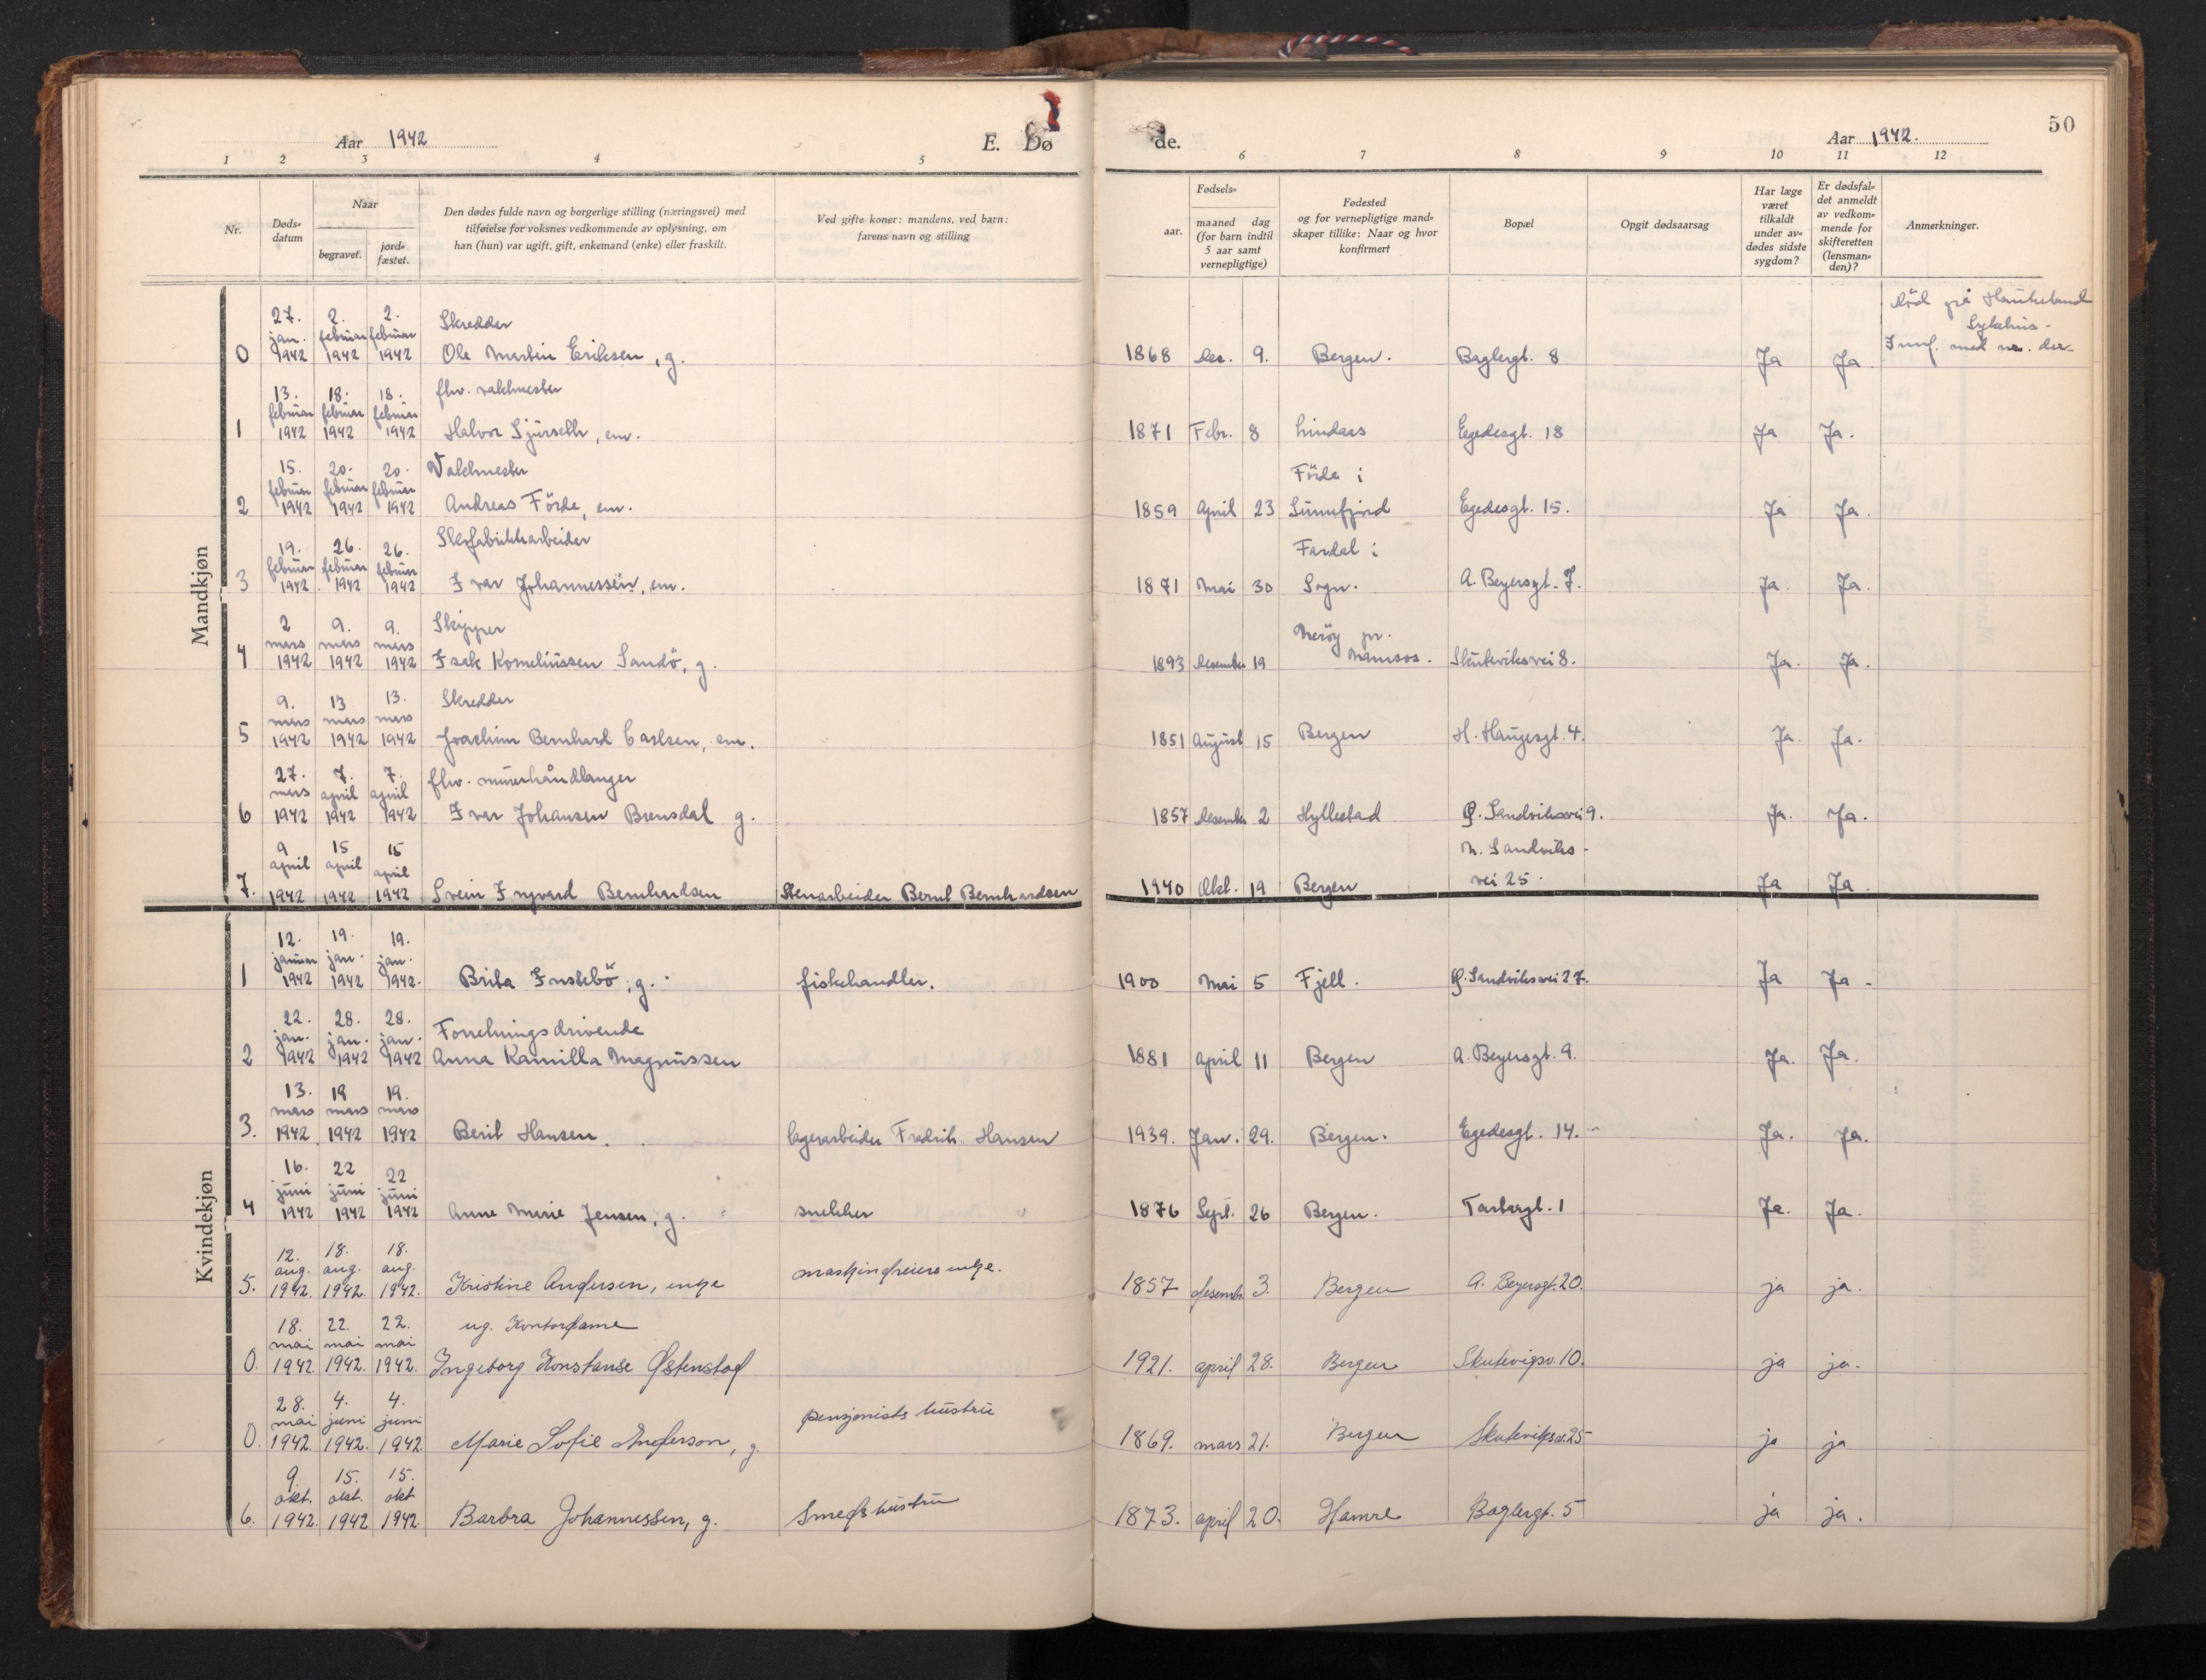 Aar 1942
E. Dø
de.
Aar 1942.
50
1 2 3 4 5
6 7 8 9 10 11 12
Nr.
Døds-
datum
Naar
begravet.
jord-
fæstet.
Den dødes fulde navn og borgerlige stilling (næringsvei) med
tilføielse for voksnes vedkommende av oplysning, om
han (hun) var ugift, gift, enkemand (enke) eller fraskilt.
Ved gifte koner: mandens, ved barn:
farens navn og stilling
Fødsels-
aar.
maaned dag
(for barn indtil
5 aar samt
vernepligtige)
Fødested
og for vernepligtige mand-
skaper tillike: Naar og hvor
konfirmert
Bopæl
Opgit dødsaarsag
Har læge
været
tilkaldt
under av-
dødes sidste
sygdom?
Er dødsfal-
det anmeldt
av vedkom-
mende for
skifteretten
(lensman-
den)?
Anmerkninger.
Mandkjøn
27. 2. 2. Skredder Död på Haukeland
jan. februar februar Sykehus -
0 1942 1942 1942 Ole Martin Eriksen, g. 1868 Des. 9. Bergen. Baglergt. 8 Ja Ja. med
13. 18. 18. fhv. vaktmester
februar februar februar
1 1942 1942 1942 Halvor Sjurseth, em. 1871 Febr. 8 Lindaas Egedesgt. 18 Ja Ja.
15. 20. 20. Vaktmester Förde i
februar februar februar
2 1942 1942 1942 Andreas Förde, em. 1859 April 23 Sunnfjord Egedesgt. 15. Ja Ja.
19. 26. 26. Skofabrikkarbeider Fardal i
februar februar februar
3 1942. 1942 1942 Ivar Johannessen, em. 1871 Mai 30 Sogn. A. Beyersgt. 7. Ja. Ja.
2 9. 9. Skipper Meröy pr.
mars mars mars
4 1942 1942 1942 Isak Korneliussen Sandö, g. 1893 Desember 19 Namsos. Skuteviksvei 8. Ja. Ja.
9. 13 13. Skredder
mars mars mars
5 1942 1942 1942 Joachim Bernhard Carlsen, em. 1851 August 15 Bergen H. Haugesgt. 4. Ja. Ja.
27. 7. 7. fhv. murerhåndlanger
mars april april
6 1942 1942 1942 Ivar Johansen Brensdal g. 1857 Desember 2 Hyllestad Ø. Sandviksvei 9. Ja. Ja.
9 15 15 N. Sandviks-
april april april
7. 1942 1942 1942 Svein Ingvard Bernhardsen Stenarbeider Bernt Bernhardsen 1940 Okt. 19 Bergen vei 25. Ja Ja.
Kvindekjøn
12. 19. 19.
januar jan. jan.
1 1942 1942 1942. Brita Instebö, g. fiskehandler. 1900 Mai 5 Fjell. Ø. Sandviksvei 27. Ja Ja.
22. 28. 28. Forretningsdrivende
jan. jan. jan.
2 1942 1942 1942 Anna Kamilla Magnussen 1881 April 11 Bergen A. Beyersgt. 9. Ja. Ja.
13. 19 19.
mars mars mars
3. 1942. 1942 1942 Berit Hansen. lagerarbeider Fredrik Hansen 1939. Jan. 29. Bergen. Egedesgt. 14. Ja. Ja.
16. 22 22
juni juni juni
4 1942 1942 1942 Anne Marie Jensen, g. snekker 1876 Sept. 26 Bergen. Tartargt. 1 Ja. Ja.
12. 18. 18.
aug. aug. aug. maskindreiers enke.
5. 1942. 1942. 1942. Kristine Andersen, enke 1857 desembr. 3. Bergen A. Beyersgt. 20. ja ja.
18. 22. 22. ug. Kontordame
mai mai mai
0. 1942. 1942. 1942. Ingeborg Konstanse Østenstad 1921. april 28. Bergen Skutevigsv. 10. ja ja.
28. 4. 4.
mai juni juni pensjonists hustru
0. 1942. 1942. 1942 Marie Sofie Anderson, g. 1869. mars 21. Bergen Skuteviksv. 25 ja ja
9. 15. 15.
okt. okt. okt Smeds hustru
6. 1942. 1942 1942. Barbra Johannessen, g. 1873. april 20. Hamre Baglergt. 5 ja ja.